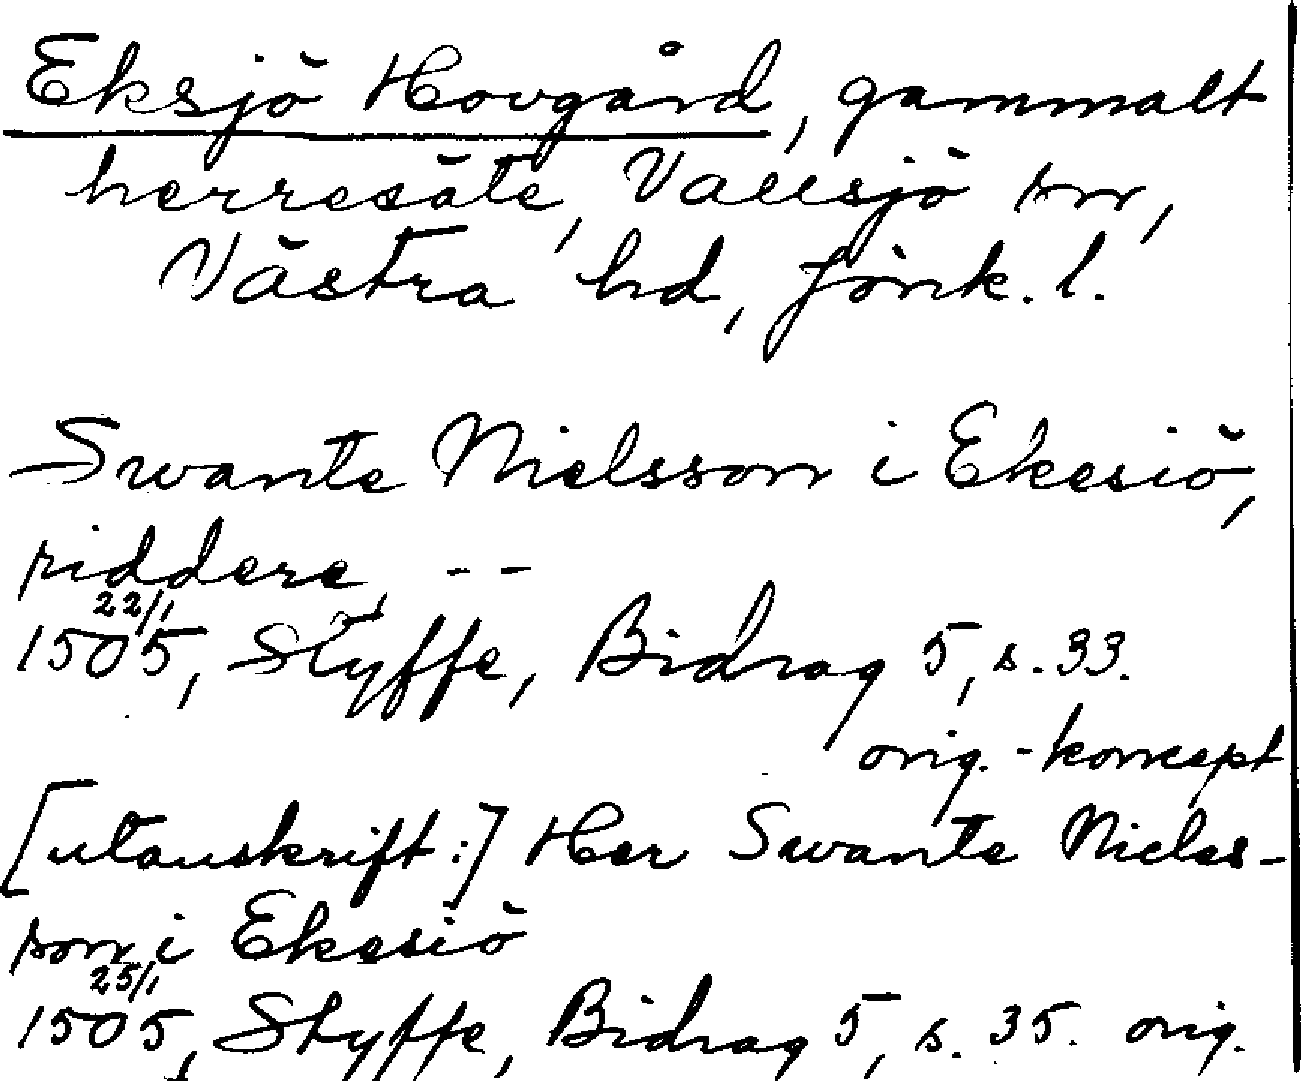 Eksjö Hovgård, gammalt
herresäte, Vallsjö sn,
Västra hd, Jönk. l.
Swante Nielsson i Ekesiö,
riddere, --
22/1
1505, Styffe, Bidrag 5, s. 33.
orig.-koncept
[utanskrift:] Her Swante Niels-
son i Ekesiö
25/1
1505, Styffe, Bidrag 5, s. 35. orig.